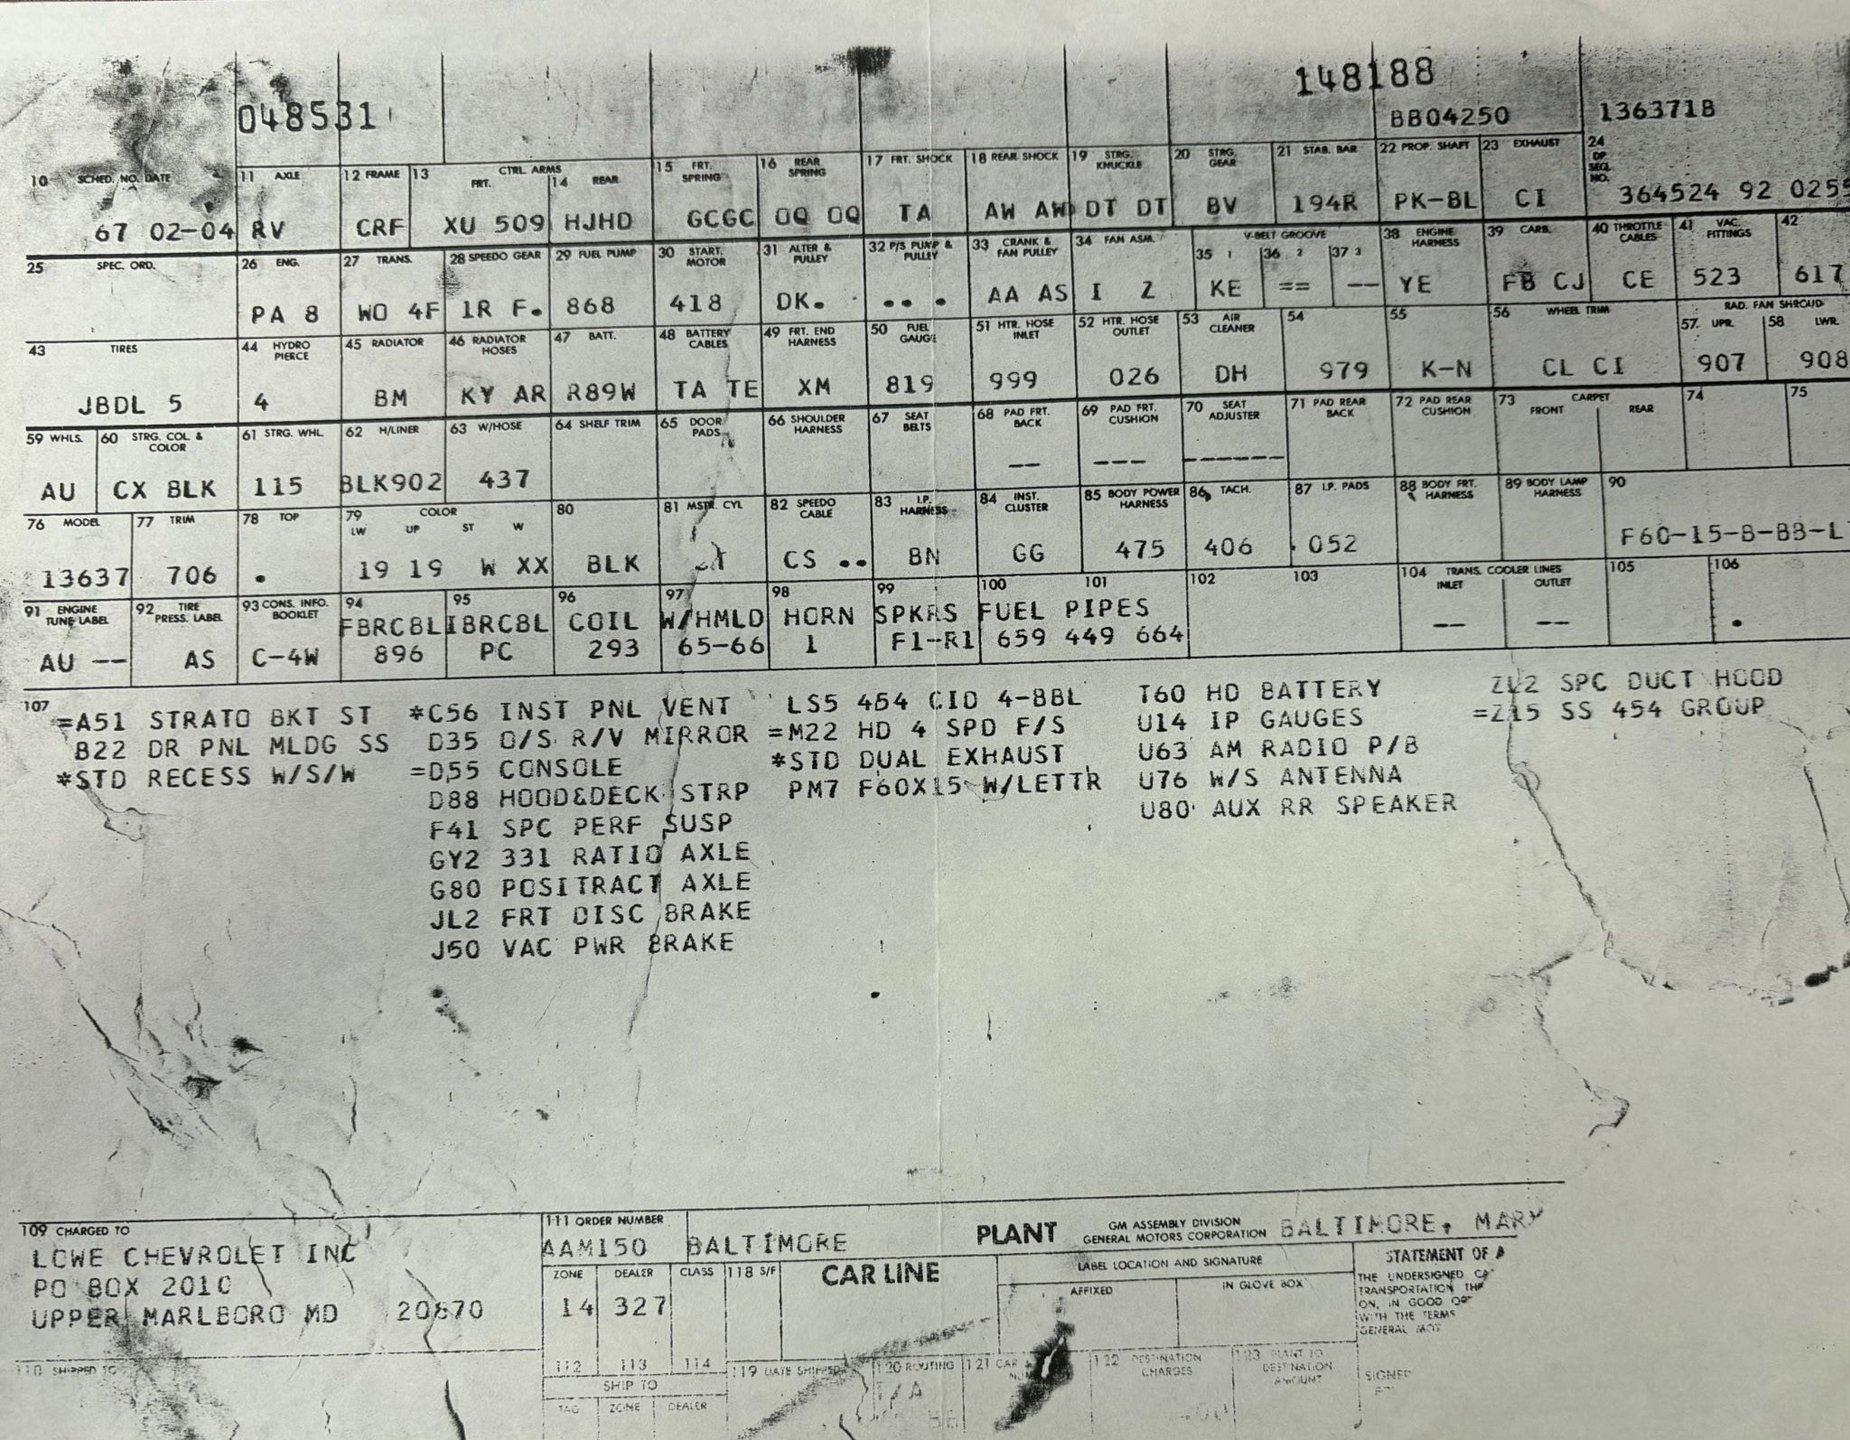 148188
048531
BB04250
136371B
10 SCHED. NO. DATE 11 AXLE 12 FRAME 13 CTRL. ARMS FRT. 14 REAR 15 FRT. SPRING 16 REAR SPRING 17 FRT. SHOCK 18 REAR SHOCK 19 STRG. KNUCKLE 20 STRG. GEAR 21 STAB. BAR 22 PROP. SHAFT 23 EXHAUST 24 DP. SEQ. NO.
67 02-04 RV CRF XU 509 HJHD GCGC OQ OQ TA AW AW DT DT BV 194R PK-BL CI 364524 92 0255
25 SPEC. ORD. 26 ENG. 27 TRANS. 28 SPEEDO GEAR 29 FUEL PUMP 30 START. MOTOR 31 ALTER & PULLEY 32 P/S PUMP & PULLEY 33 CRANK & FAN PULLEY 34 FAN ASM. V-BELT GROOVE 35 1 36 2 37 3 38 ENGINE HARNESS 39 CARB. 40 THROTTLE CABLES 41 VAC. FITTINGS 42
PA 8 WO 4F 1R F. 868 418 DK. .. . AA AS I Z KE == -- YE FB CJ CE 523 617
43 TIRES 44 HYDRO PIERCE 45 RADIATOR 46 RADIATOR HOSES 47 BATT. 48 BATTERY CABLES 49 FRT. END HARNESS 50 FUEL GAUGE 51 HTR. HOSE INLET 52 HTR. HOSE OUTLET 53 AIR CLEANER 54 55 56 WHEEL TRIM RAD. FAN SHROUD 57. UPR. 58 LWR.
JBDL 5 4 BM KY AR R89W TA TE XM 819 999 026 DH 979 K-N CL CI 907 908
59 WHLS. 60 STRG. COL & COLOR 61 STRG. WHL. 62 H/LINER 63 W/HOSE 64 SHELF TRIM 65 DOOR PADS 66 SHOULDER HARNESS 67 SEAT BELTS 68 PAD FRT. BACK 69 PAD FRT. CUSHION 70 SEAT ADJUSTER 71 PAD REAR BACK 72 PAD REAR CUSHION 73 CARPET FRONT REAR 74 75
AU CX BLK 115 BLK902 437 -- --- ------
76 MODEL 77 TRIM 78 TOP 79 COLOR LW UP ST W 80 81 MSTR. CYL 82 SPEEDO CABLE 83 I.P. HARNESS 84 INST. CLUSTER 85 BODY POWER HARNESS 86 TACH. 87 I.P. PADS 88 BODY FRT. HARNESS 89 BODY LAMP HARNESS 90
13637 706 . 19 19 W XX BLK CS .. BN GG 475 406 052 F60-15-B-BB-L
91 ENGINE TUNE LABEL 92 TIRE PRESS. LABEL 93 CONS. INFO. BOOKLET 94 95 96 97 98 99 100 101 102 103 104 TRANS. COOLER LINES INLET OUTLET 105 106
FBRCBL IBRCBL COIL W/HMLD HORN SPKRS FUEL PIPES
AU -- AS C-4W 896 PC 293 65-66 1 F1-R1 659 449 664 -- -- .
107
=A51 STRATO BKT ST *C56 INST PNL VENT LS5 454 CID 4-BBL T60 HD BATTERY ZL2 SPC DUCT HOOD
B22 DR PNL MLDG SS D35 O/S R/V MIRROR =M22 HD 4 SPD F/S U14 IP GAUGES =Z15 SS 454 GROUP
*STD RECESS W/S/W =D55 CONSOLE *STD DUAL EXHAUST U63 AM RADIO P/B
D88 HOOD&DECK STRP PM7 F60X15 W/LETTR U76 W/S ANTENNA
F41 SPC PERF SUSP U80 AUX RR SPEAKER
GY2 331 RATIO AXLE
G80 POSITRACT AXLE
JL2 FRT DISC BRAKE
J50 VAC PWR BRAKE
109 CHARGED TO 111 ORDER NUMBER PLANT GM ASSEMBLY DIVISION GENERAL MOTORS CORPORATION BALTIMORE, MARY
LOWE CHEVROLET INC AAM150 BALTIMORE
PO BOX 2010
UPPER MARLBORO MD 20870
ZONE DEALER CLASS 118 S/F CAR LINE LABEL LOCATION AND SIGNATURE
14 327 AFFIXED IN GLOVE BOX
STATEMENT OF A
THE UNDERSIGNED
TRANSPORTATION
ON, IN GOOD
WITH THE TERMS
GENERAL
110 SHIPPED TO 112 113 114 119 DATE SHIPPED 120 ROUTING 121 CAR 122 DESTINATION CHARGES 123 PLANT TO DESTINATION AMOUNT
SHIP TO T/A
TAG ZONE DEALER